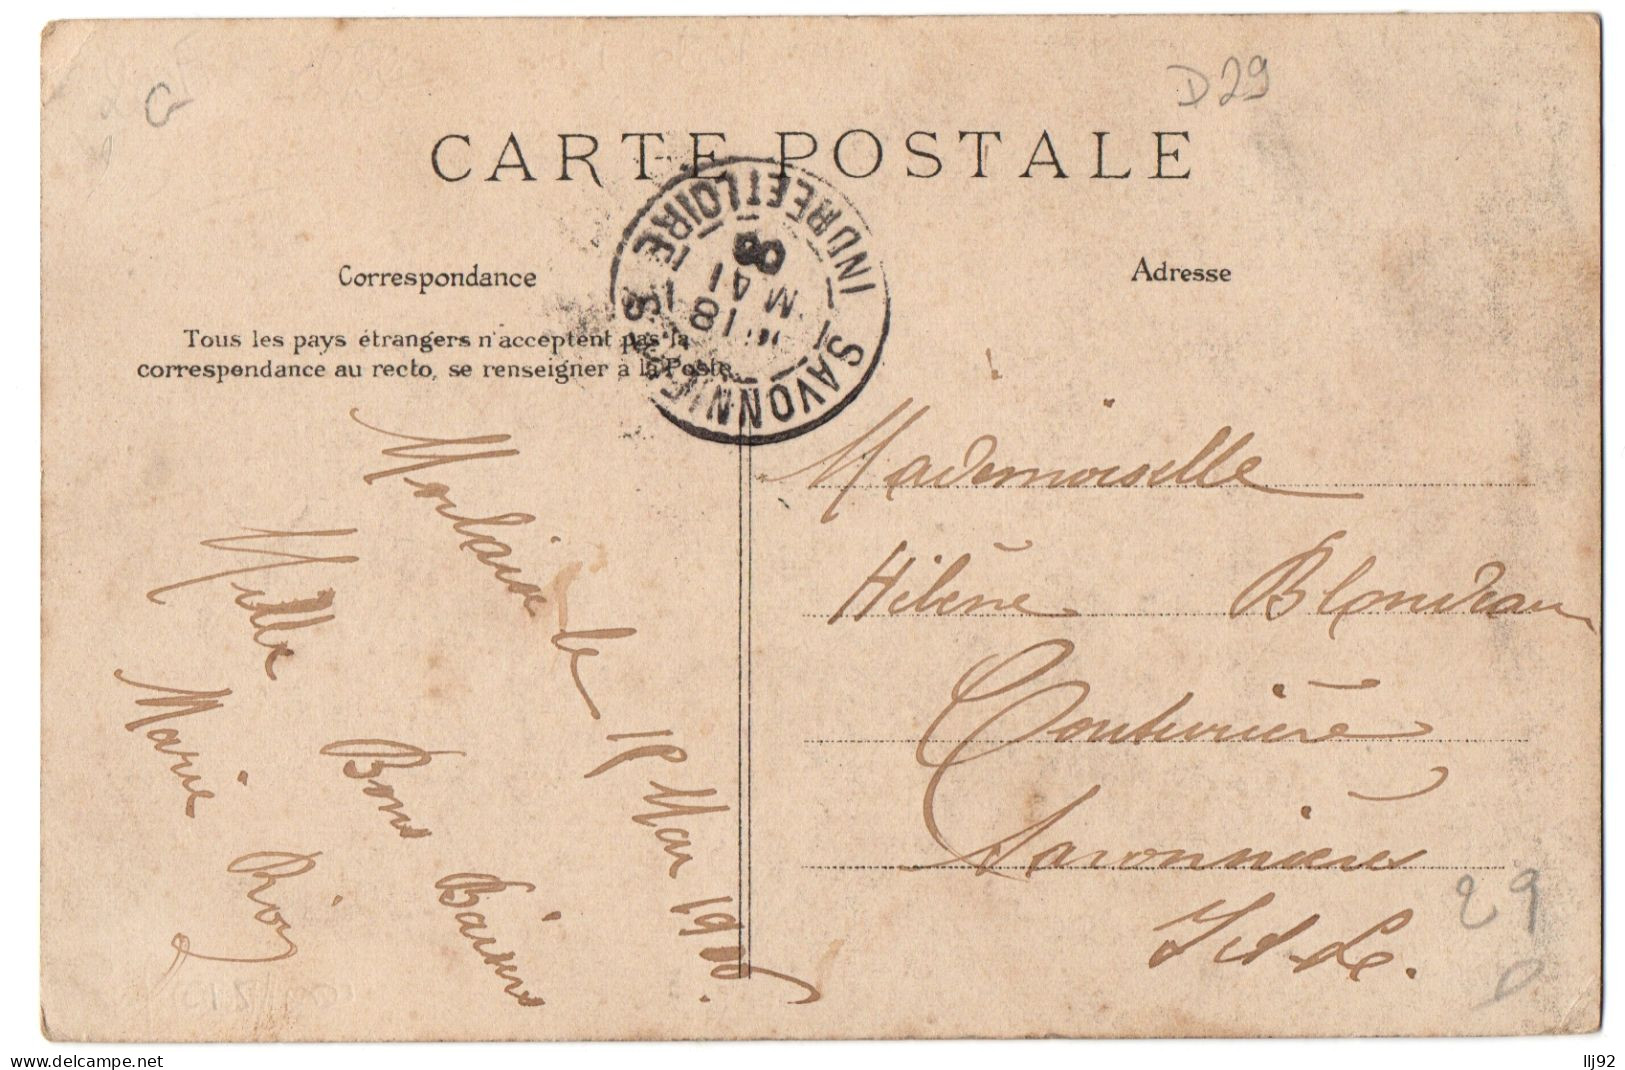 G
D29
CARTE POSTALE
Correspondance
Adresse
Tous les pays étrangers n'acceptent pas la
correspondance au recto, se renseigner à la Poste
SAVONNIERES
INDRE ET LOIRE
18
MAI
08
Morlaix le 18 Mai 1908.
Mille Bons Baisers
Marie
Mademoiselle
Hélène Blondeau
Couturière
Savonnières
I et Le.
29
delcampe.net
llj92